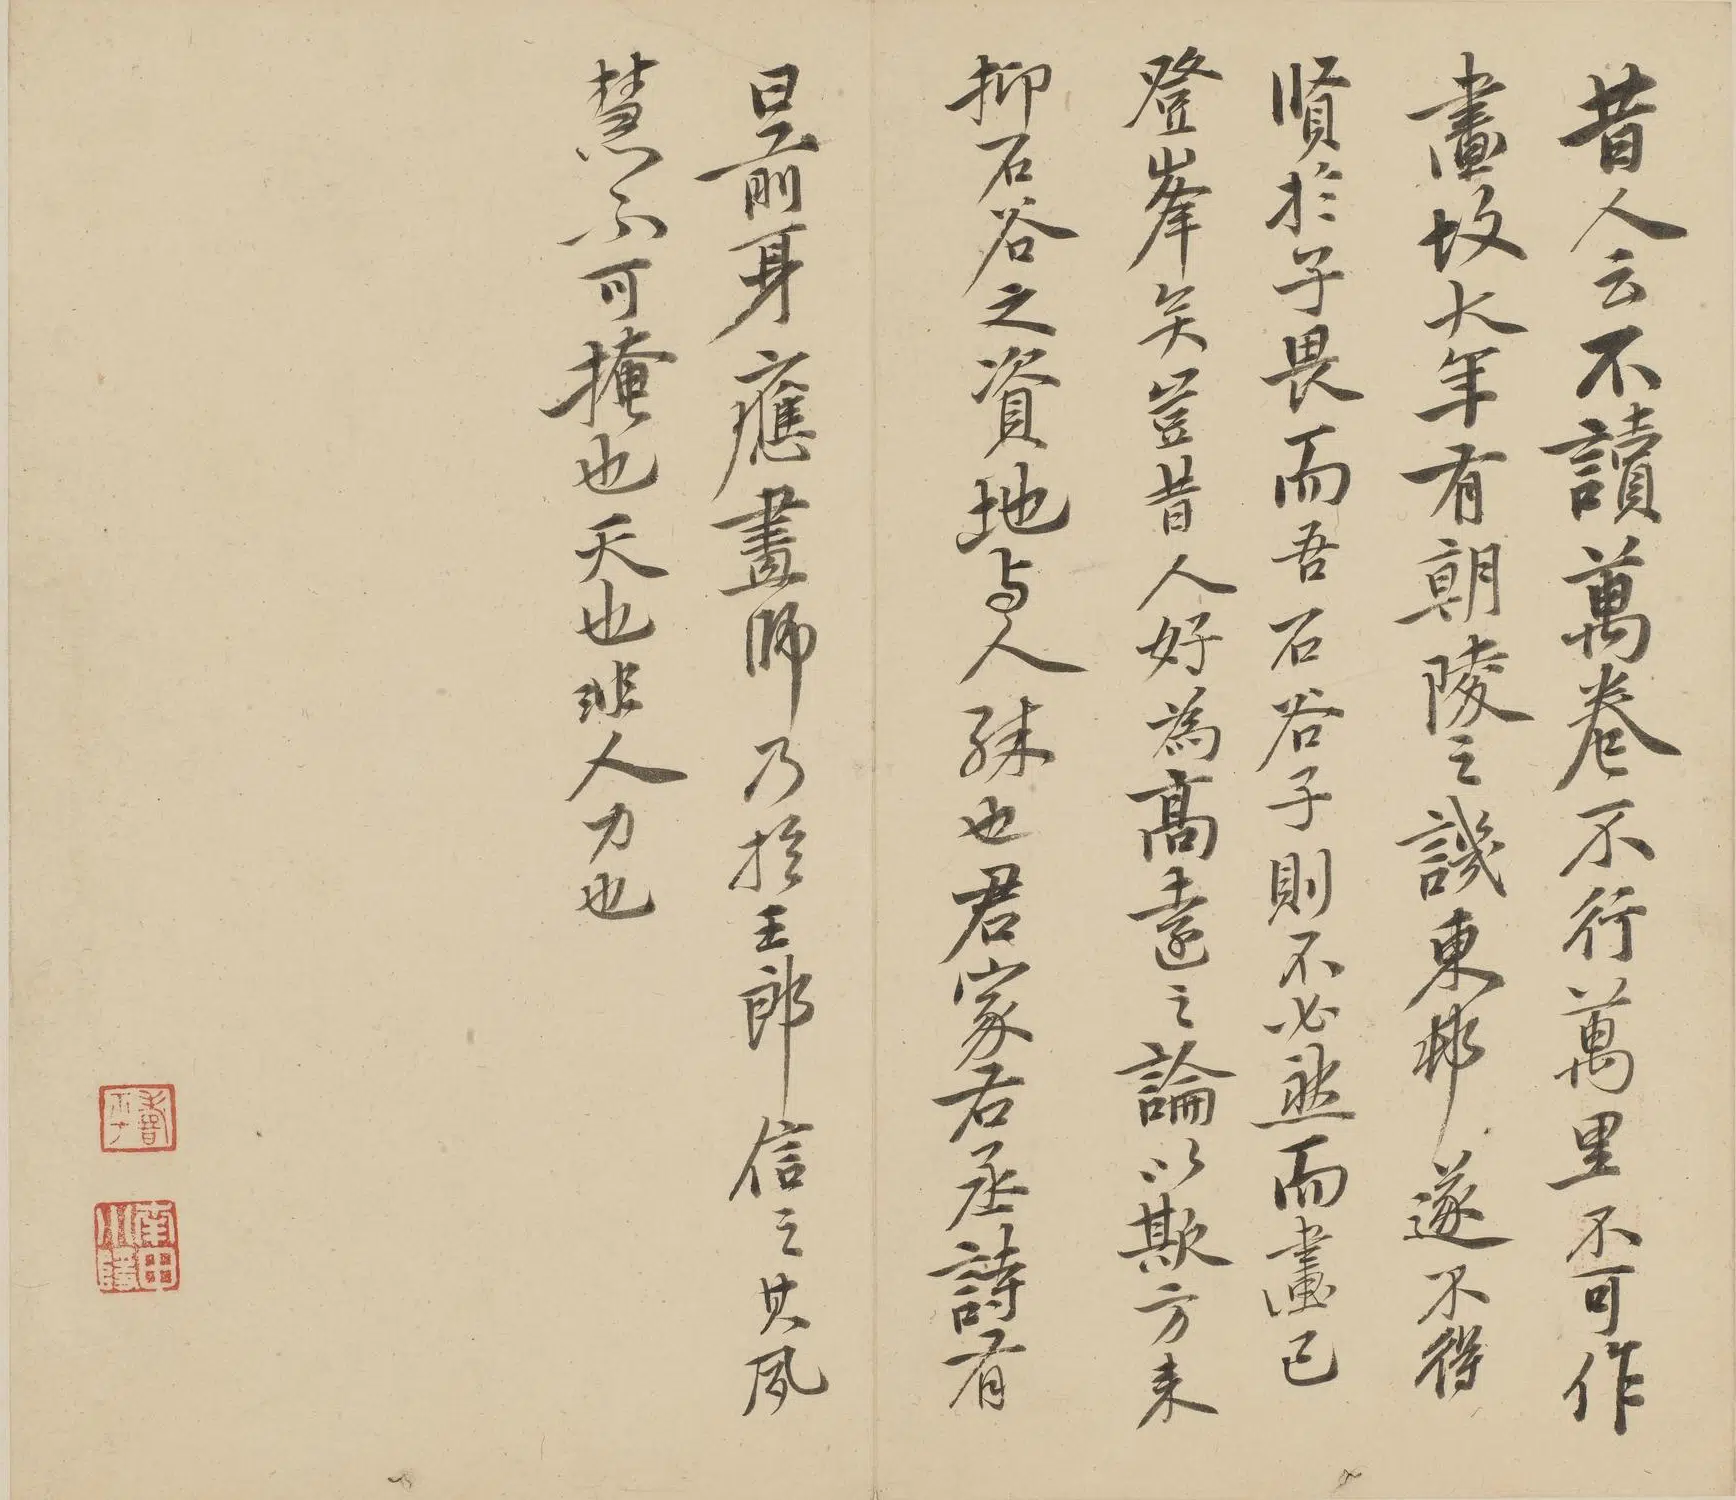 昔人云不讀萬卷不行萬里不可作
畫故大年有朝陵之譏東邨遂不得
賢於子畏而吾石谷子則不必然而畫已
登峯矣豈昔人好為高遠之論以欺方来
抑石谷之資地与人殊也君家右丞詩有
曰前身應畫師乃於王郎信之其夙
慧不可掩也天也非人力也
壽平
南田小隱